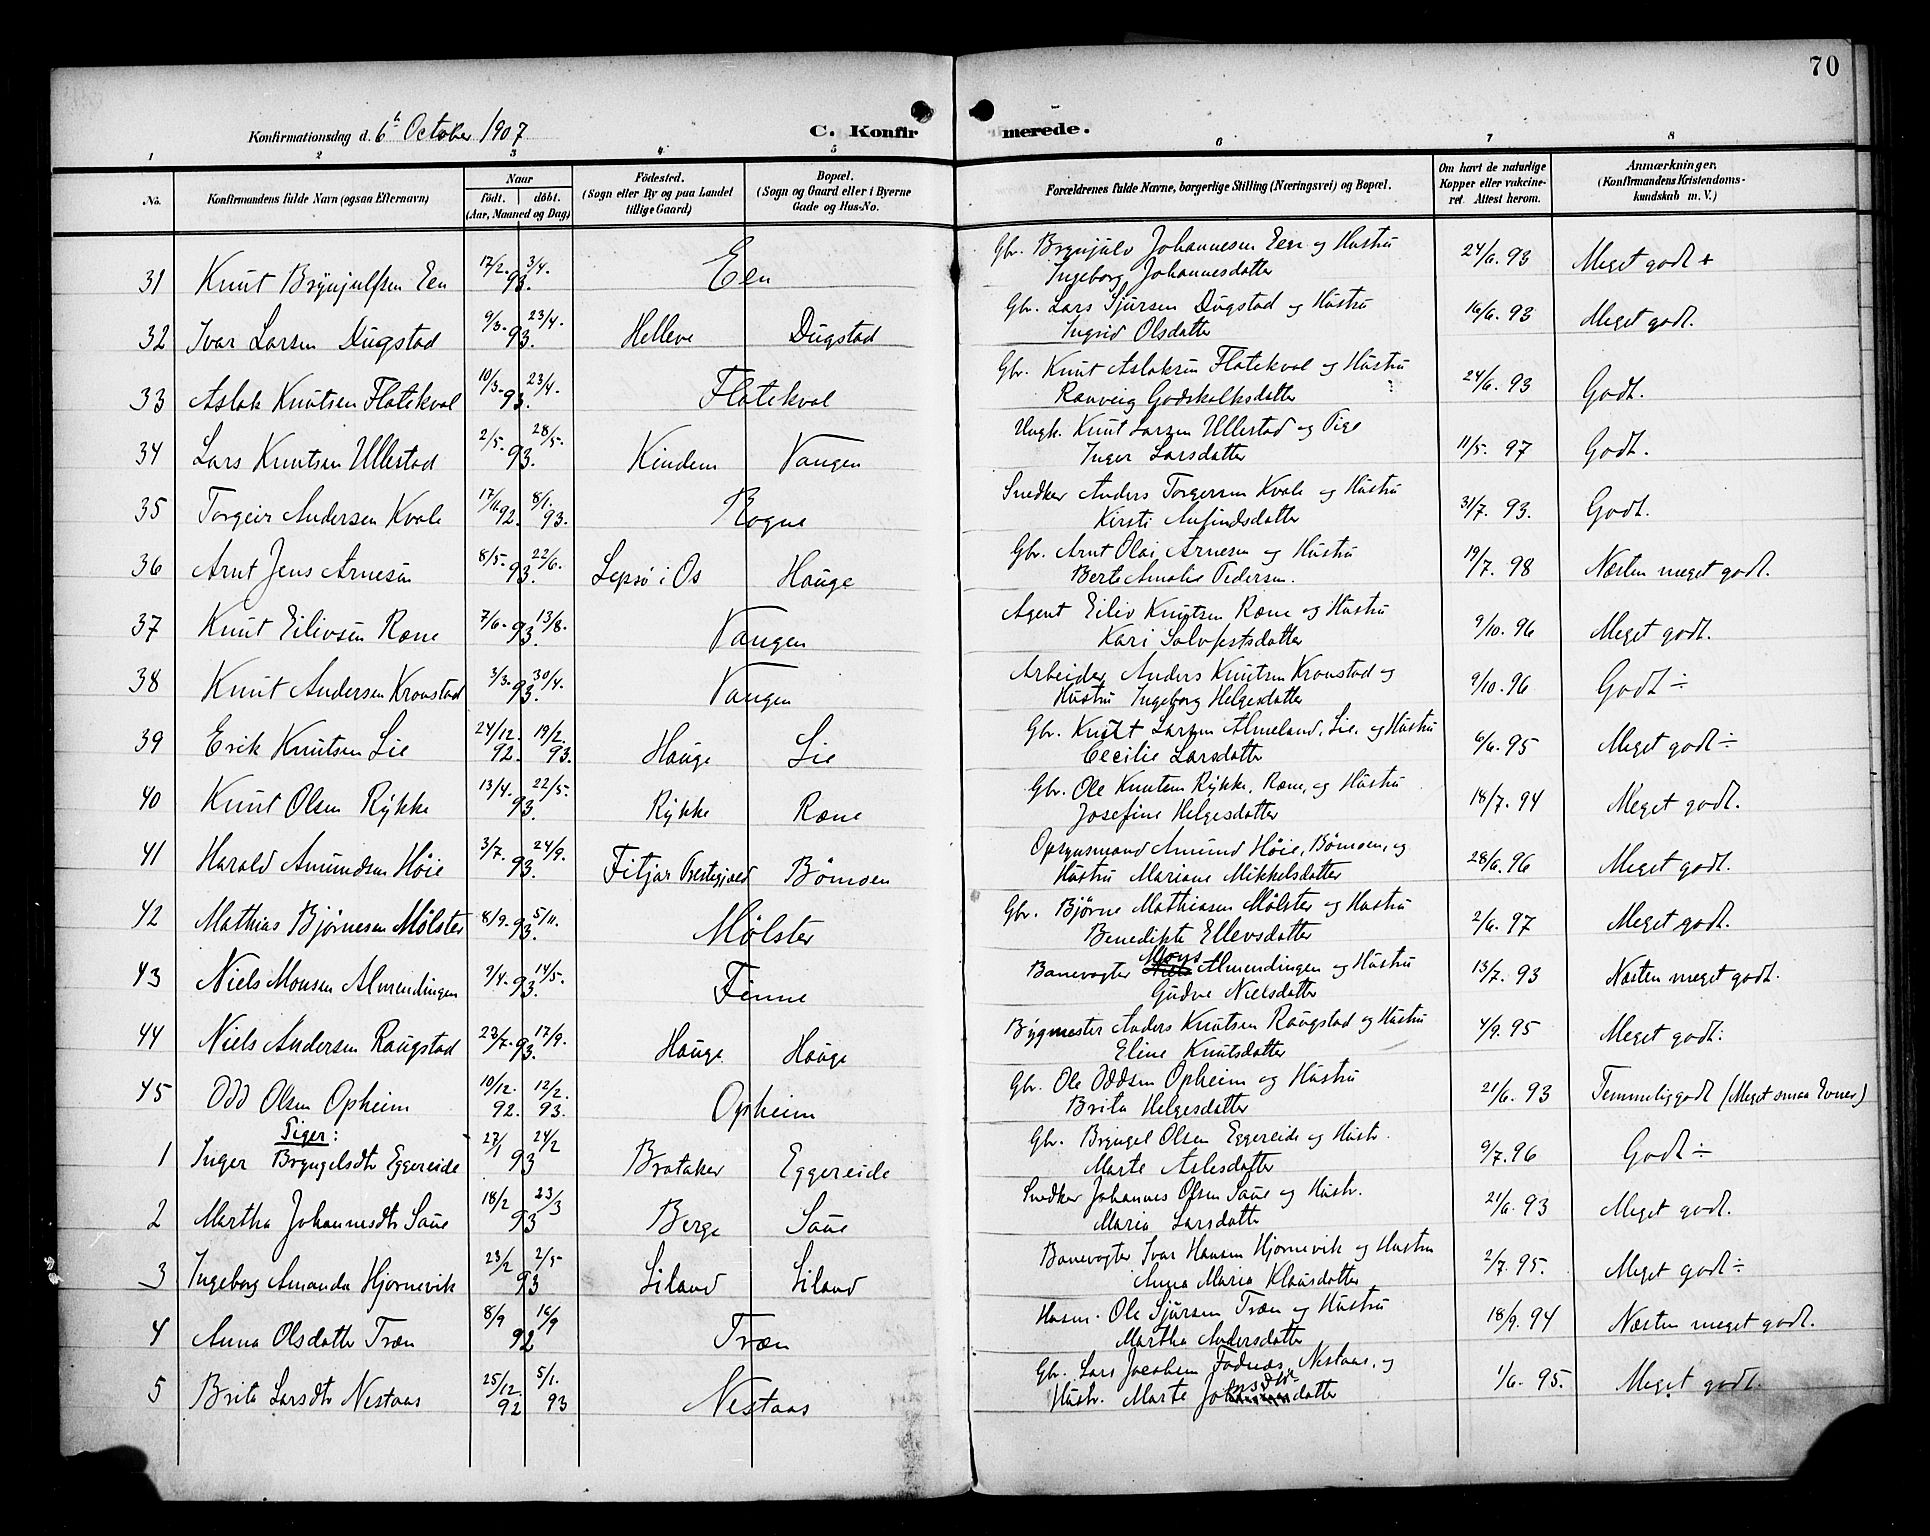 70
Konfirmationsdag d. 6te October 1907
C. Konfirmerede.
1 2 3 4 5 6 7 8
No. Konfirmandens fulde Navn (ogsaa Efternavn) Naar født. døbt. (Aar, Maaned og Dag) Födested. (Sogn eller By og paa Landet tillige Gaard) Bopæl. (Sogn og Gaard eller i Byerne Gade og Hus-No. Forældrenes fulde Navne, borgerlige Stilling (Næringsvei) og Bopæl. Om havt de naturlige Kopper eller vakcineret. Attest herom. Anmærkninger. (Konfirmandens Kristendomskundskab m. V.)
31 Knut Brynjulfsen Een 17/2. 3/4. 93. Een Gbr. Brynjulv Johannesen Een og Hustru Ingeborg Johannesdatter 24/6. 93 Meget godt +
32 Ivar Larsen Dugstad 9/3. 23/4. 93. Helleve Dugstad Gbr. Lars Sjursen Dugstad og Hustru Ingrid Olsdatter 16/6. 93 Meget godt.
33 Aslak Knutsen Flatekval 10/3. 23/4. 93. Flatekval Gbr. Knut Aslaksen Flatekval og Hustru Ranveig Godskalksdatter 24/6. 93 Godt.
34 Lars Knutsen Ullestad 2/5. 28/5. 93. Kindem Vangen Ungk. Knut Larsen Ullestad og Pige Inger Larsdatter 11/5. 97 Godt.
35 Torgeir Andersen Kvale 17/11. 92. 8/1. 93. Rogne Snedker Anders Torgersen Kvale og Hustru Kirsti Anfindsdatter 31/7. 93. Godt.
36 Arnt Jens Arnesen 8/5. 22/6. 93. Lepsø i Os Hauge Gbr. Arnt Olai Arnesen og Hustru Berte Amalie Pedersen. 19/7. 98 Næsten meget godt.
37 Knut Eilivsen Ræne 7/6. 13/8. 93. Vangen Agent Eiliv Knutsen Ræne og Hustru Kari Solvfestsdatter 9/10. 96 Meget godt.
38 Knut Andersen Kronstad 3/3. 30/4. 93. Vangen Arbeider Anders Knutsen Kronstad og Hustru Ingeborg Helgesdatter 9/10. 96 Godt ÷
39 Erik Knutsen Lie 24/12. 92. 19/2. 93. Hauge Lie Gbr. Knut Larsen Almeland, Lie, og Hustru Cecilie Larsdatter 6/6. 95 Meget godt ÷
40 Knut Olsen Rykke 13/4. 22/5. 93. Rykke Ræne Gbr. Ole Knutsen Rykke, Ræne, og Hustru Josefine Helgesdatter 18/7. 94 Meget godt.
41 Harald Amundsen Høie 3/7. 24/9. 93. Fitjar Prestegjæld Bømoen Opsynsmand Amund Høie, Bømoen, og Hustru Mariane Mikkelsdatter 28/6. 96 Meget godt.
42 Mathias Bjørnesen Mølster 8/9. 5/11. 93. Mølster Gbr. Bjørne Mathiasen Mølster og Hustru Benedikte Ellevsdatter 2/6. 97 Meget godt.
43 Niels Monsen Almendingen 9/4. 14/5. 93. Finne Banevogter Mons Almendingen og Hustru Gudve Nielsdatter 13/7. 93 Næsten meget godt.
44 Niels Andersen Raugstad 27/7. 17/9. 93. Hauge. Hauge Bygmester Anders Knutsen Raugstad og Hustru Eline Knutsdatter 4/9. 95 Meget godt.
45 Odd Olsen Opheim 10/12. 92. 12/2. 93. Opheim Gbr. Ole Oddsen Opheim og Hustru Brita Helgesdatter 21/6. 93 Temmelig godt (Meget smaa Evner)
Piger:
1 Inger Bryngelsdtr Eggereide 27/1 24/2 93 Brataker Eggereide Gbr. Bryngel Olsen Eggereide og Hustr. Marte Aslesdatter 9/7. 96 Godt ÷
2 Martha Johannesdtr Saue 18/2 23/3 93 Berge Saue Snedker Johannes Olsen Saue og Hustr. Maria Larsdatter 21/6. 93 Meget godt.
3 Ingeborg Amanda Hjørnevik 23/2 2/5 93 Liland Liland Banevogter Ivar Hansen Hjørnevik og Hustru Anna Maria Klausdatter 2/7. 95. Meget godt ÷
4 Anna Olsdatter Træn 8/9 16/9 92 Træn Husm. Ole Sjursen Træn og Hustru Martha Andersdatter 18/9. 94 Næsten meget godt.
5 Brita Larsdtr Nestaas 25/12. 92 5/1. 93 Nestaas Gbr. Lars Jacobsen Fadnæs, Nestaas, og Hustr. Marte 1/6. 95. Meget godt.